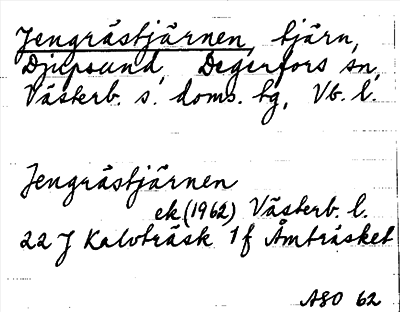 Jengråstjärnen, tjärn,
Djupsund, Degerfors sn,
Västerb. s. doms. tg, Vb. l.
Jengråstjärnen
ek (1962) Västerb. l.
22 J Kalvträsk 1f Åmträsket
ASO 62